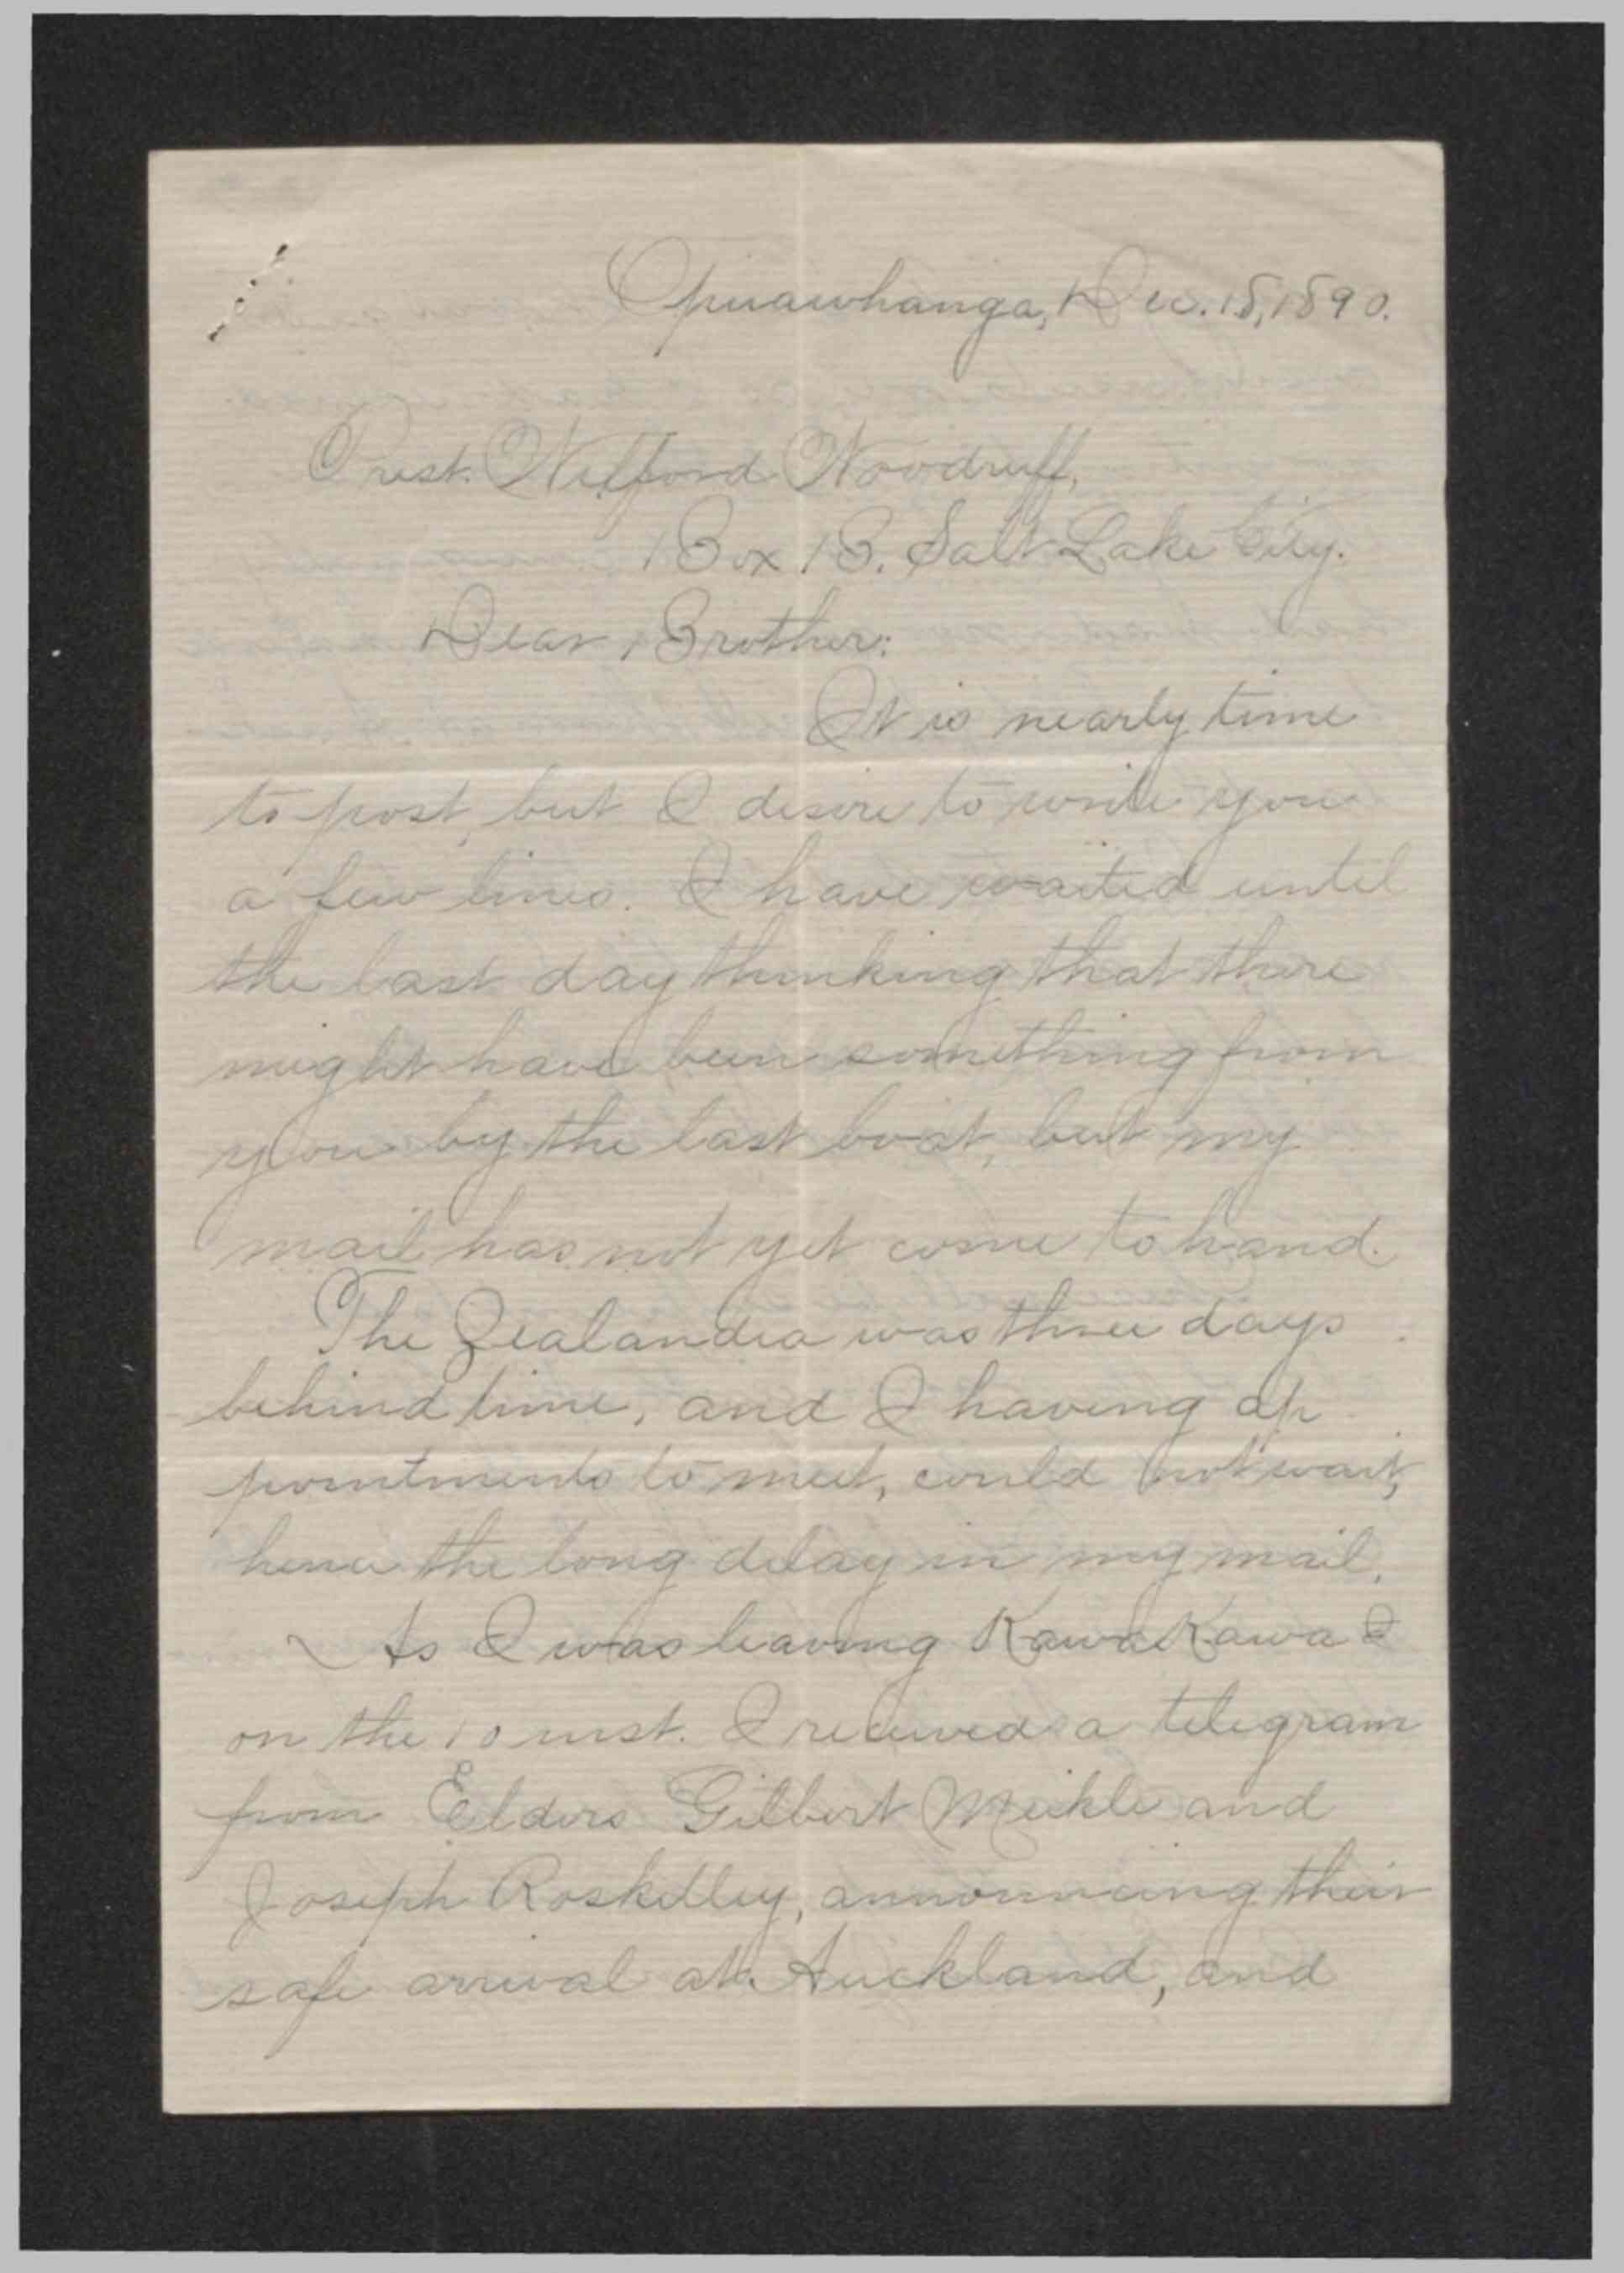 Opuawhanga, Dec. 18, 1890.
Prest. Wilford Woodruff,
Box B. Salt Lake City.
Dear Brother:
It is nearly time
to post, but I desire to write you
a few lines. I have waited until
the last day thinking that there
might have been something from
you by the last boat, but my
mail has not yet come to hand.
The Zealandia was three days
behind time, and I having ap
pointments to meet, could not wait,
hence the long delay in my mail.
As I was leaving KawaKawa I
on the 10 inst. I received a telegram
from Elders Gilbert Meikle and
Joseph Roskelley, announcing their
safe arrival at Auckland, and